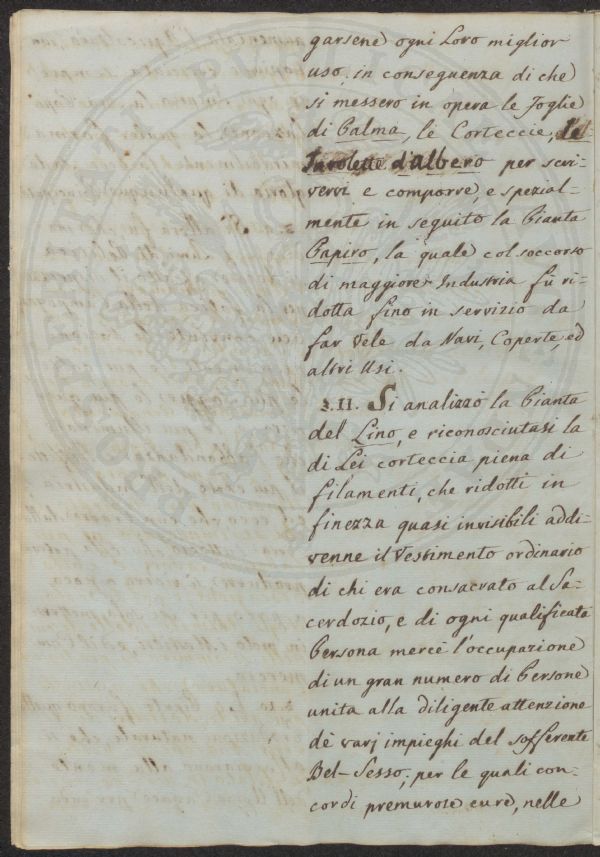 garsene ogni Loro miglior
uso, in conseguenza di che
si messero in opera le Foglie
di Palma, le Corteccie, le
Tavolette d'albero per scri-
vervi e comporre, e spezial-
mente in seguito la Pianta
Papiro, la quale col soccorso
di maggiore Industria fù ri-
dotta fino in servizio da
far Vele da Navi, Coperte, ed
altri Usi.
§.II. Si analizzò la Pianta
del Lino, e riconosciutasi la
di Lei corteccia piena di
filamenti, che ridotti in
finezza quasi invisibili addi-
venne il Vestimento ordinario
di chi era consacrato al Sa-
cerdozio, e di ogni qualificata
Persona mercè l'occupazione
di un gran numero di Persone
unita alla diligente attenzione
dè varj impieghi del sofferente
Bel-Sesso, per le quali con-
cordi premurose cure, nelle